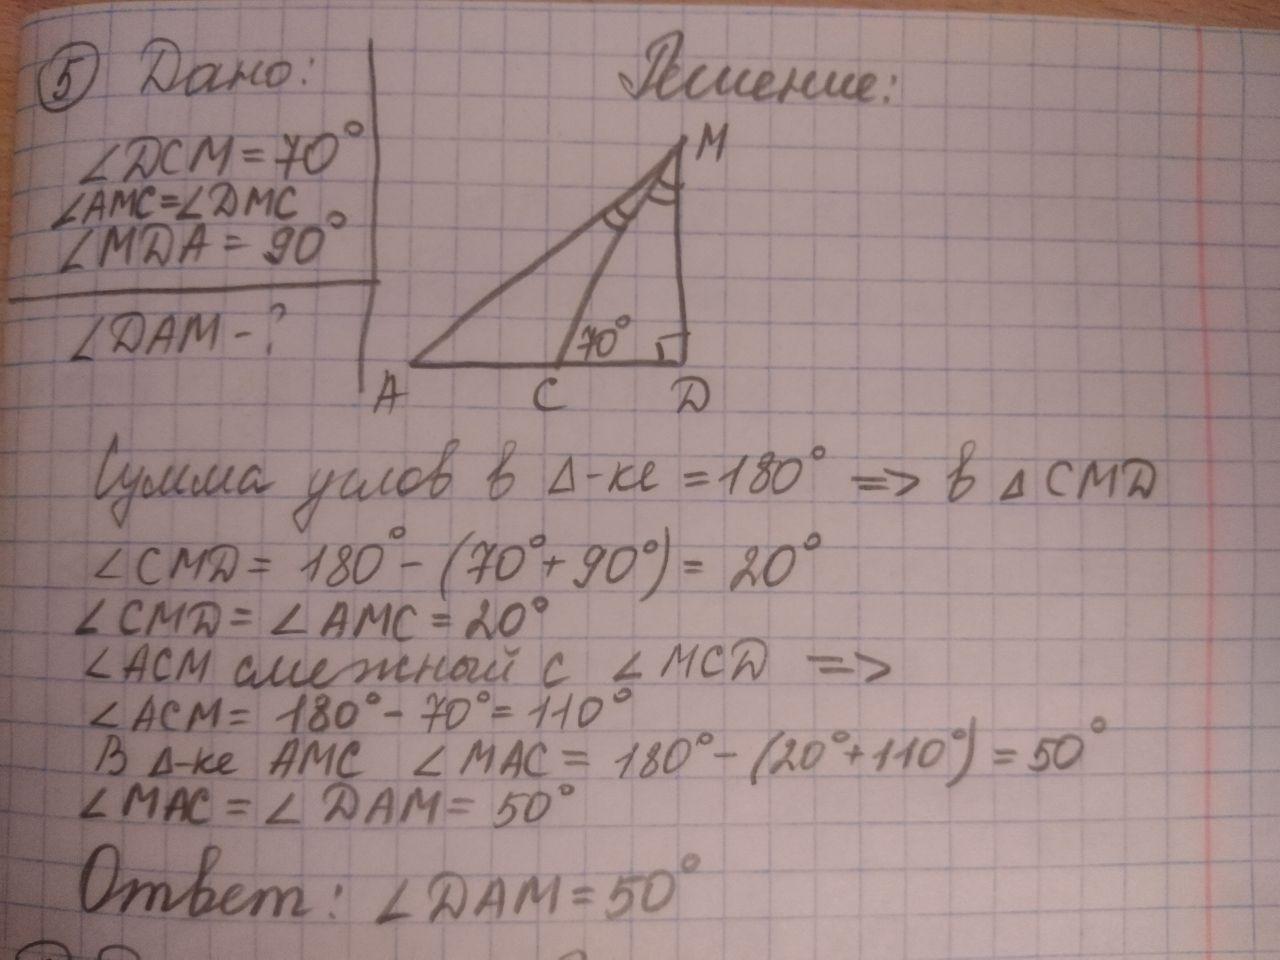 ⑤ Дано:
∠DCM = 70°
∠AMC = ∠DMC
∠MDA = 90°
∠DAM - ?
Решение:
M
70°
A C D
Сумма углов в Δ-ке = 180° => в Δ CMD
∠CMD = 180° - (70° + 90°) = 20°
∠CMD = ∠AMC = 20°
∠ACM смежный с ∠MCD =>
∠ACM = 180° - 70° = 110°
В Δ-ке AMC ∠MAC = 180° - (20° + 110°) = 50°
∠MAC = ∠DAM = 50°
Ответ: ∠DAM = 50°